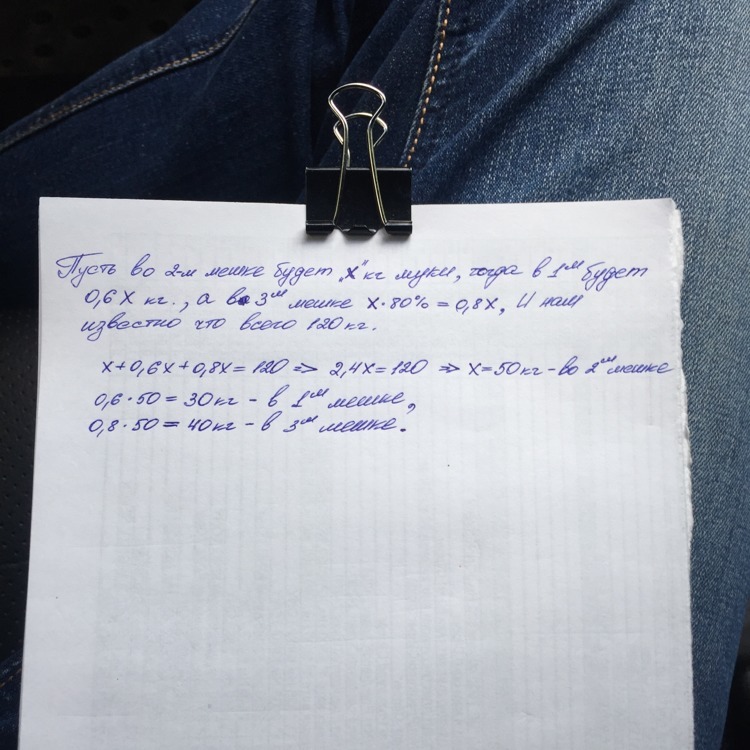 Пусть во 2-м мешке будет „x" кг муки, тогда в 1ᵐ будет
0,6x кг., а в 3ᵐ мешке x·80% = 0,8x, И нам
известно что всего 120 кг.
x+0,6x+0,8x=120 => 2,4x=120 => x=50кг - во 2ᵐ мешке
0,6·50=30кг - в 1ᵐ мешке,
0,8·50=40кг - в 3ᵐ мешке.